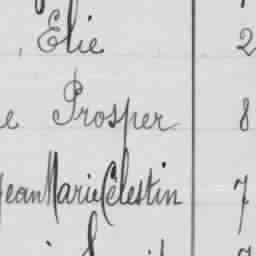 , Elie 2
e Prosper 8
Jean Marie Célestin 7